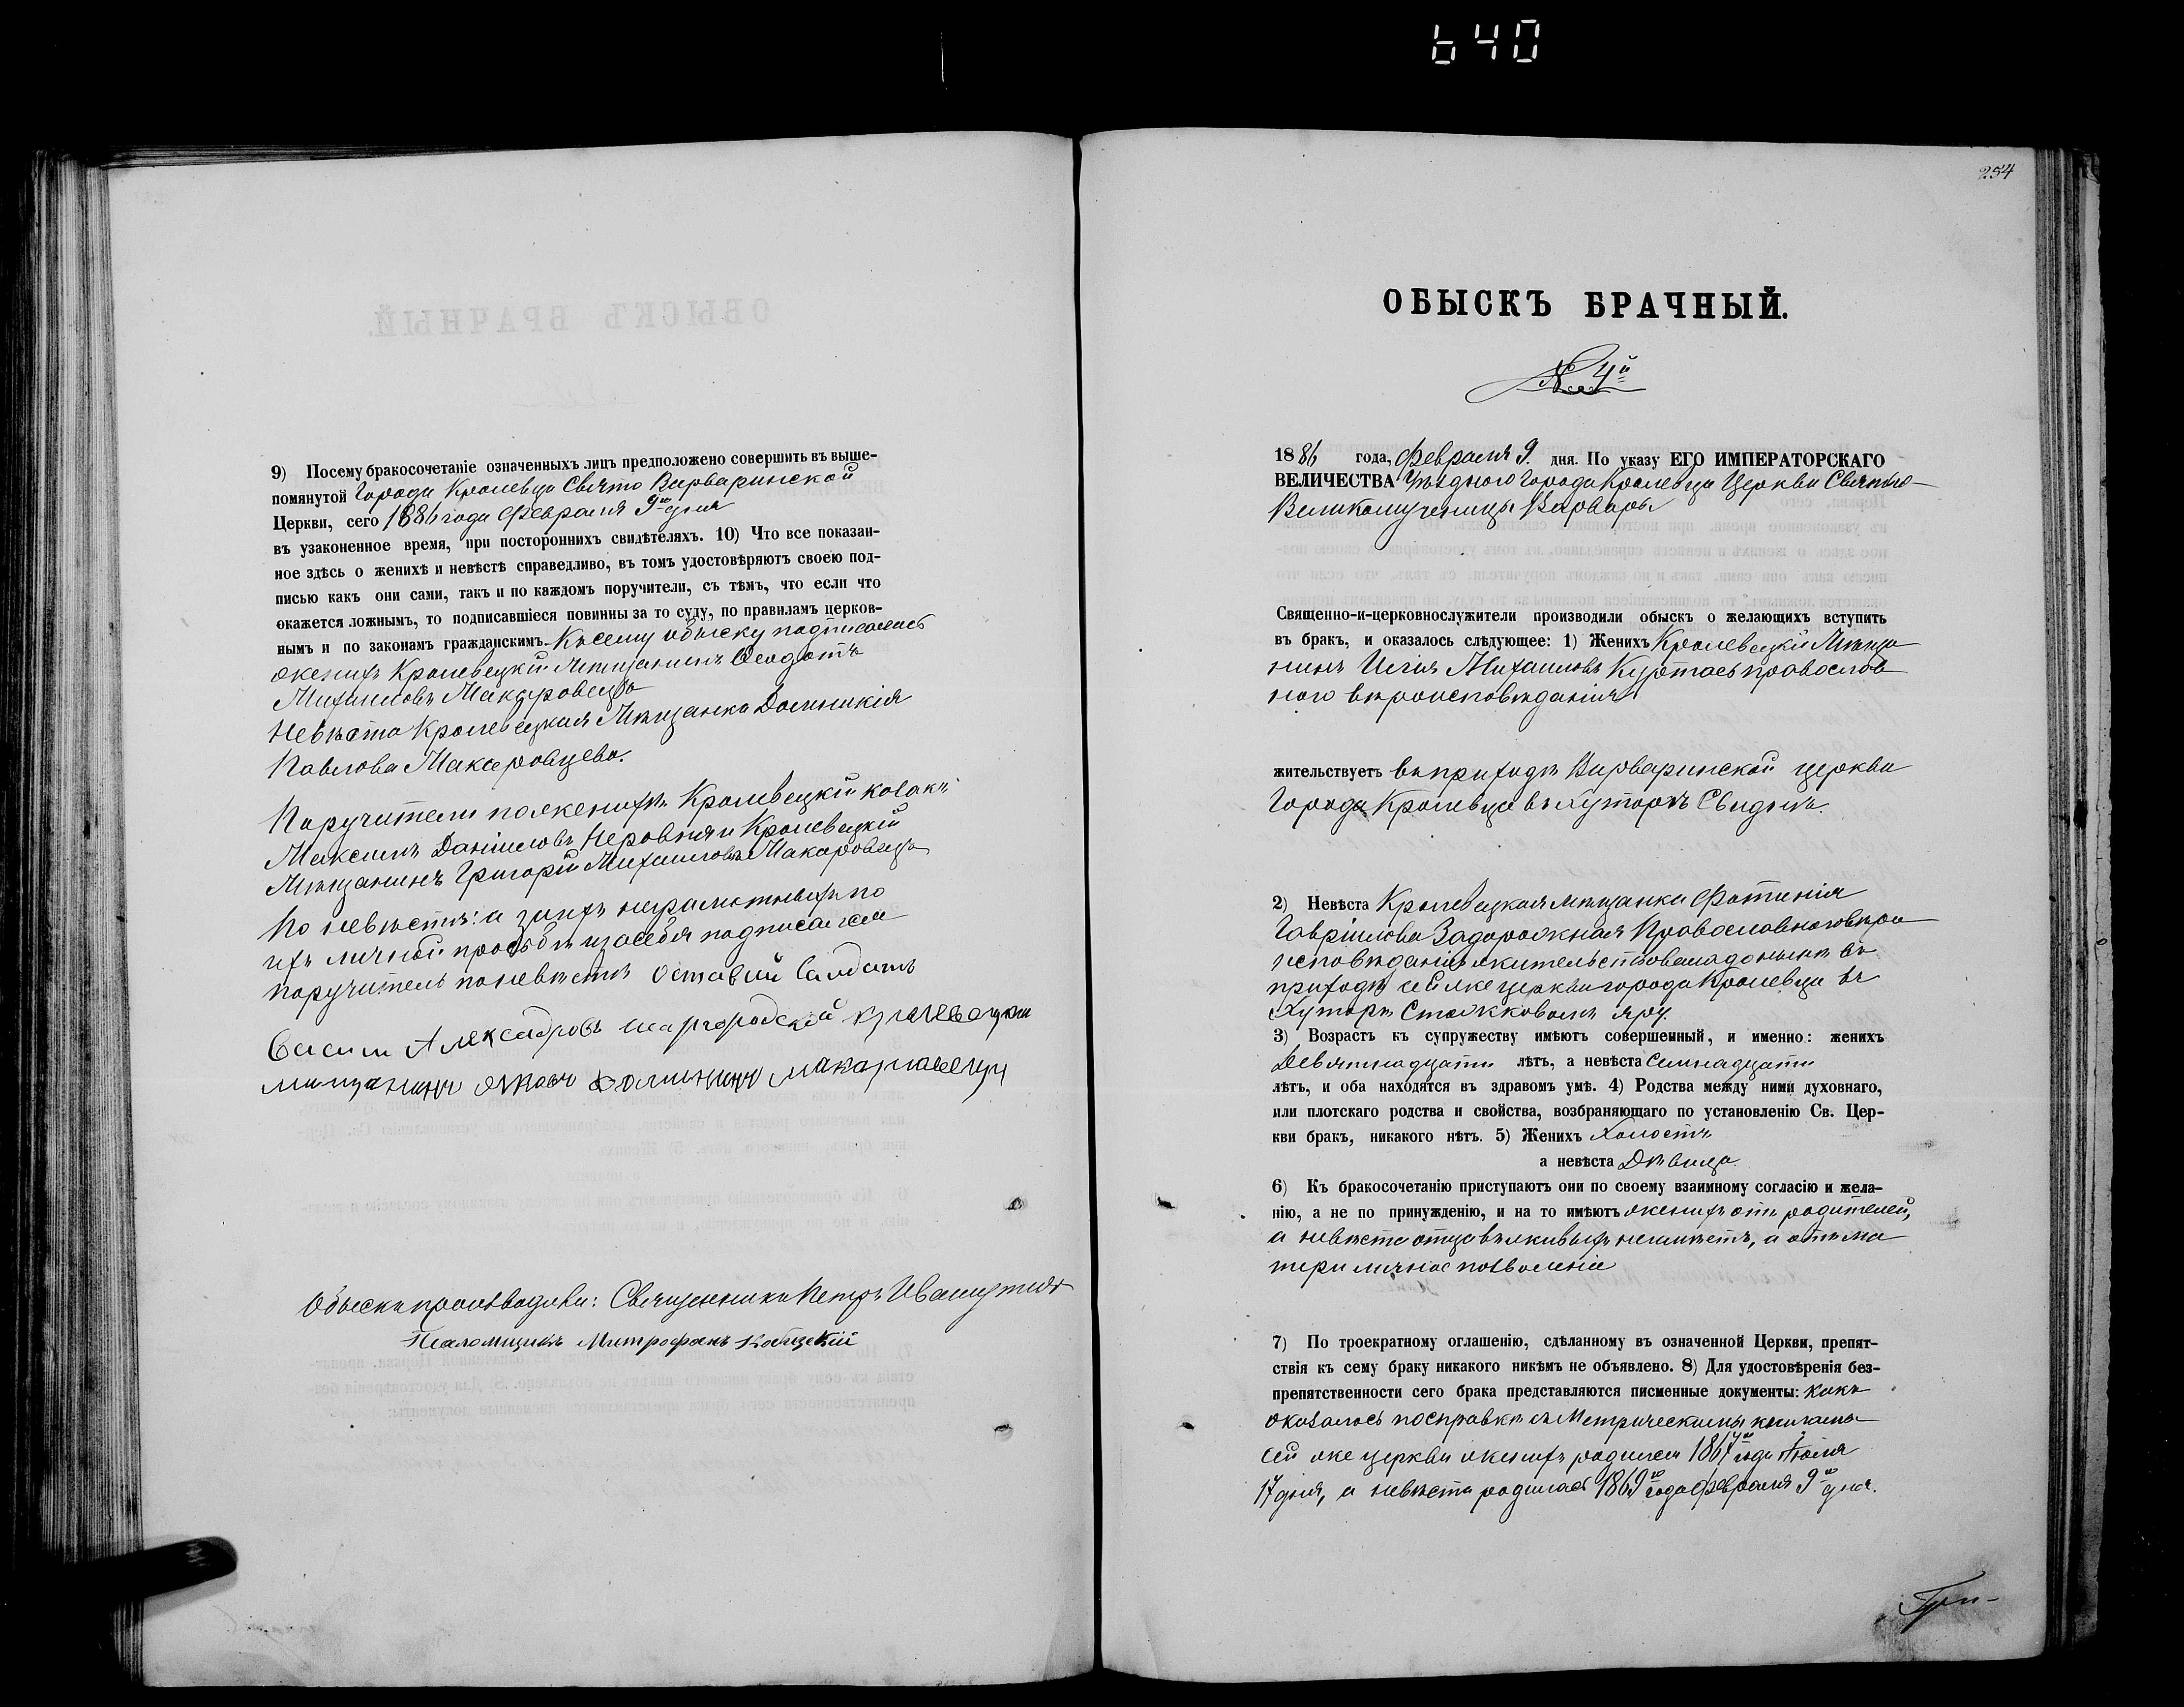 640
9) Посему бракосочетаніе означенныхъ лицъ предположено совершить въ выше-
помянутой Города Кролевца Свято Варваринской
Церкви, сего 1886 года Февраля 9го дня
въ узаконенное время, при постороннихъ свидѣтеляхъ. 10) Что все показан-
ное здѣсь о женихѣ и невѣстѣ справедливо, въ томъ удостовѣряютъ своею под-
писью какъ они сами, такъ и по каждомъ поручители, съ тѣмъ, что если что
окажется ложнымъ, то подписавшіеся повинны за то суду, по правиламъ церков-
нымъ и по законамъ гражданскимъ. Къ сему обыску подписались
женихъ Кролевецкій Мѣщанинъ Ѳеодотъ
Михаиловъ Макаровецъ
Невѣста Кролевецкая Мѣщанка Домникія
Павлова Макаровцева.
Поручители по женихѣ Кролевецкій козакъ
Максимъ Даніиловъ Неровня и Кролевецкій
Мѣщанинъ Григорій Михаиловъ Макаровецъ
по невѣстѣ: а за ихъ неграмотныхъ по
ихъ личной просьбѣ и за себя подписался
поручитель по невѣстѣ Отставной Салдатъ
Василій Александровъ кралевецкий
мищанинъ Яковъ Макаравецъ
Обыскъ производили: Священникъ Петръ
Псаломщикъ Митрофанъ
254
ОБЫСКЪ БРАЧНЫЙ.
№ 4й
1886 года, Февраля 9. дня. По указу ЕГО ИМПЕРАТОРСКАГО
ВЕЛИЧЕСТВА Уѣзднаго города Кролевца Церкви Святыя
Великомученицы Варвары
Священно-и-церковнослужители производили обыскъ о желающихъ вступить
въ бракъ, и оказалось слѣдующее: 1) Женихъ Кролевецкій Мѣща
нинъ Илія Михаиловъ Куртасъ православ
наго вѣроисповѣданія
жительствуетъ въ приходѣ Варваринской церкви
Города Кролевца въ хуторѣ Свидѣ.
2) Невѣста Кролевецкая мѣщанка Фотинія
Гавріилова Задорожная Православнаго вѣро
исповѣданія жительствовала донынѣ въ
приходѣ сей же церкви города Кролевца въ
Хуторѣ Стожковомъ Яру
3) Возрастъ къ супружеству имѣютъ совершенный, и именно: женихъ
Девятнадцати лѣтъ, а невѣста Семнадцати
лѣтъ, и оба находятся въ здравомъ умѣ. 4) Родства между ними духовнаго,
или плотскаго родства и свойства, возбраняющаго по установленію Св. Цер-
кви бракъ, никакого нѣтъ. 5) Женихъ Холостъ
а невѣста Дѣвица
6) Къ бракосочетанію приступаютъ они по своему взаимному согласію и жела-
нію, а не по принужденію, и на то имѣютъ женихъ отъ родителей,
а невѣста отца въ живыхъ неимѣетъ, а отъ ма
тери личное позволеніе
7) По троекратному оглашенію, сдѣланному въ означенной Церкви, препят-
ствія къ сему браку никакого никѣмъ не объявлено. 8) Для удостовѣренія без-
препятственности сего брака представляются писменные документы: какъ
оказалось по справкѣ съ Метрическими книгами
сей же церкви женихъ родился 1867го года Іюля
17 дня, а невѣста родилась 1869го года Февраля 9го дня.